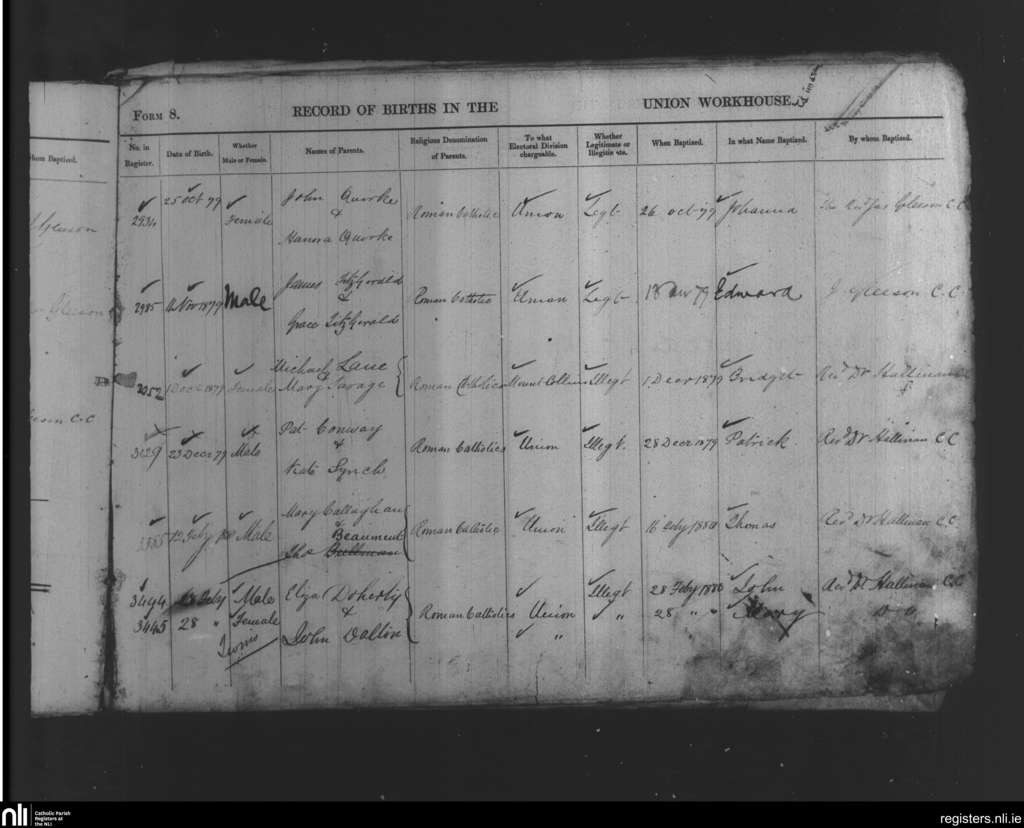 hom Baptized.
Gleeson
Gleeson
C.C
FORM 8.
RECORD OF BIRTHS IN THE UNION WORKHOUSE.
No. in Register.
Date of Birth.
Whether Male or Female.
Names of Parents.
Religious Denomination of Parents.
To what Electoral Division chargeable.
Whether Legitimate or Illegitimate.
When Baptized.
In what Name Baptized.
By whom Baptized.
25 Oct 79 John Quorke
2934 Female & Roman Catholic Union Legt 26 Oct 79 Johanna Gleeson C.C
Hanora Quorke
James FitzGerald
2985 Nov 1879 Male & Roman Catholic Union Legt 18 Nov 79 Edward J Gleeson C.C
Grace FitzGerald
Michael Lane
1 Decr 1879 Female Mary Savage Roman Catholics Mount Collins Illegt 1 Decr 1879 Bridget Revd Dr Hallinan
Pat Conway
3129 23 Decr 79 Male & Roman Catholics Union Illegt. 28 Decr 1879 Patrick Revd Dr Hallinan C C
Kate Lynch
Mary Callaghan
Feby Male & Beaument Roman Catholic Union Illegt 16 Feby 1880 Thomas Revd Dr Hallinan C C
Thos
3494 Feby Male Eliza Doherty Illegt 28 Feby 1880 John Revd Dr Hallinan C.C
3445 28 " Female & Roman Catholics Union " 28 " " Mary " "
Twins John Dalton "
nli
Catholic Parish
Registers at
the NLI
registers.nli.ie